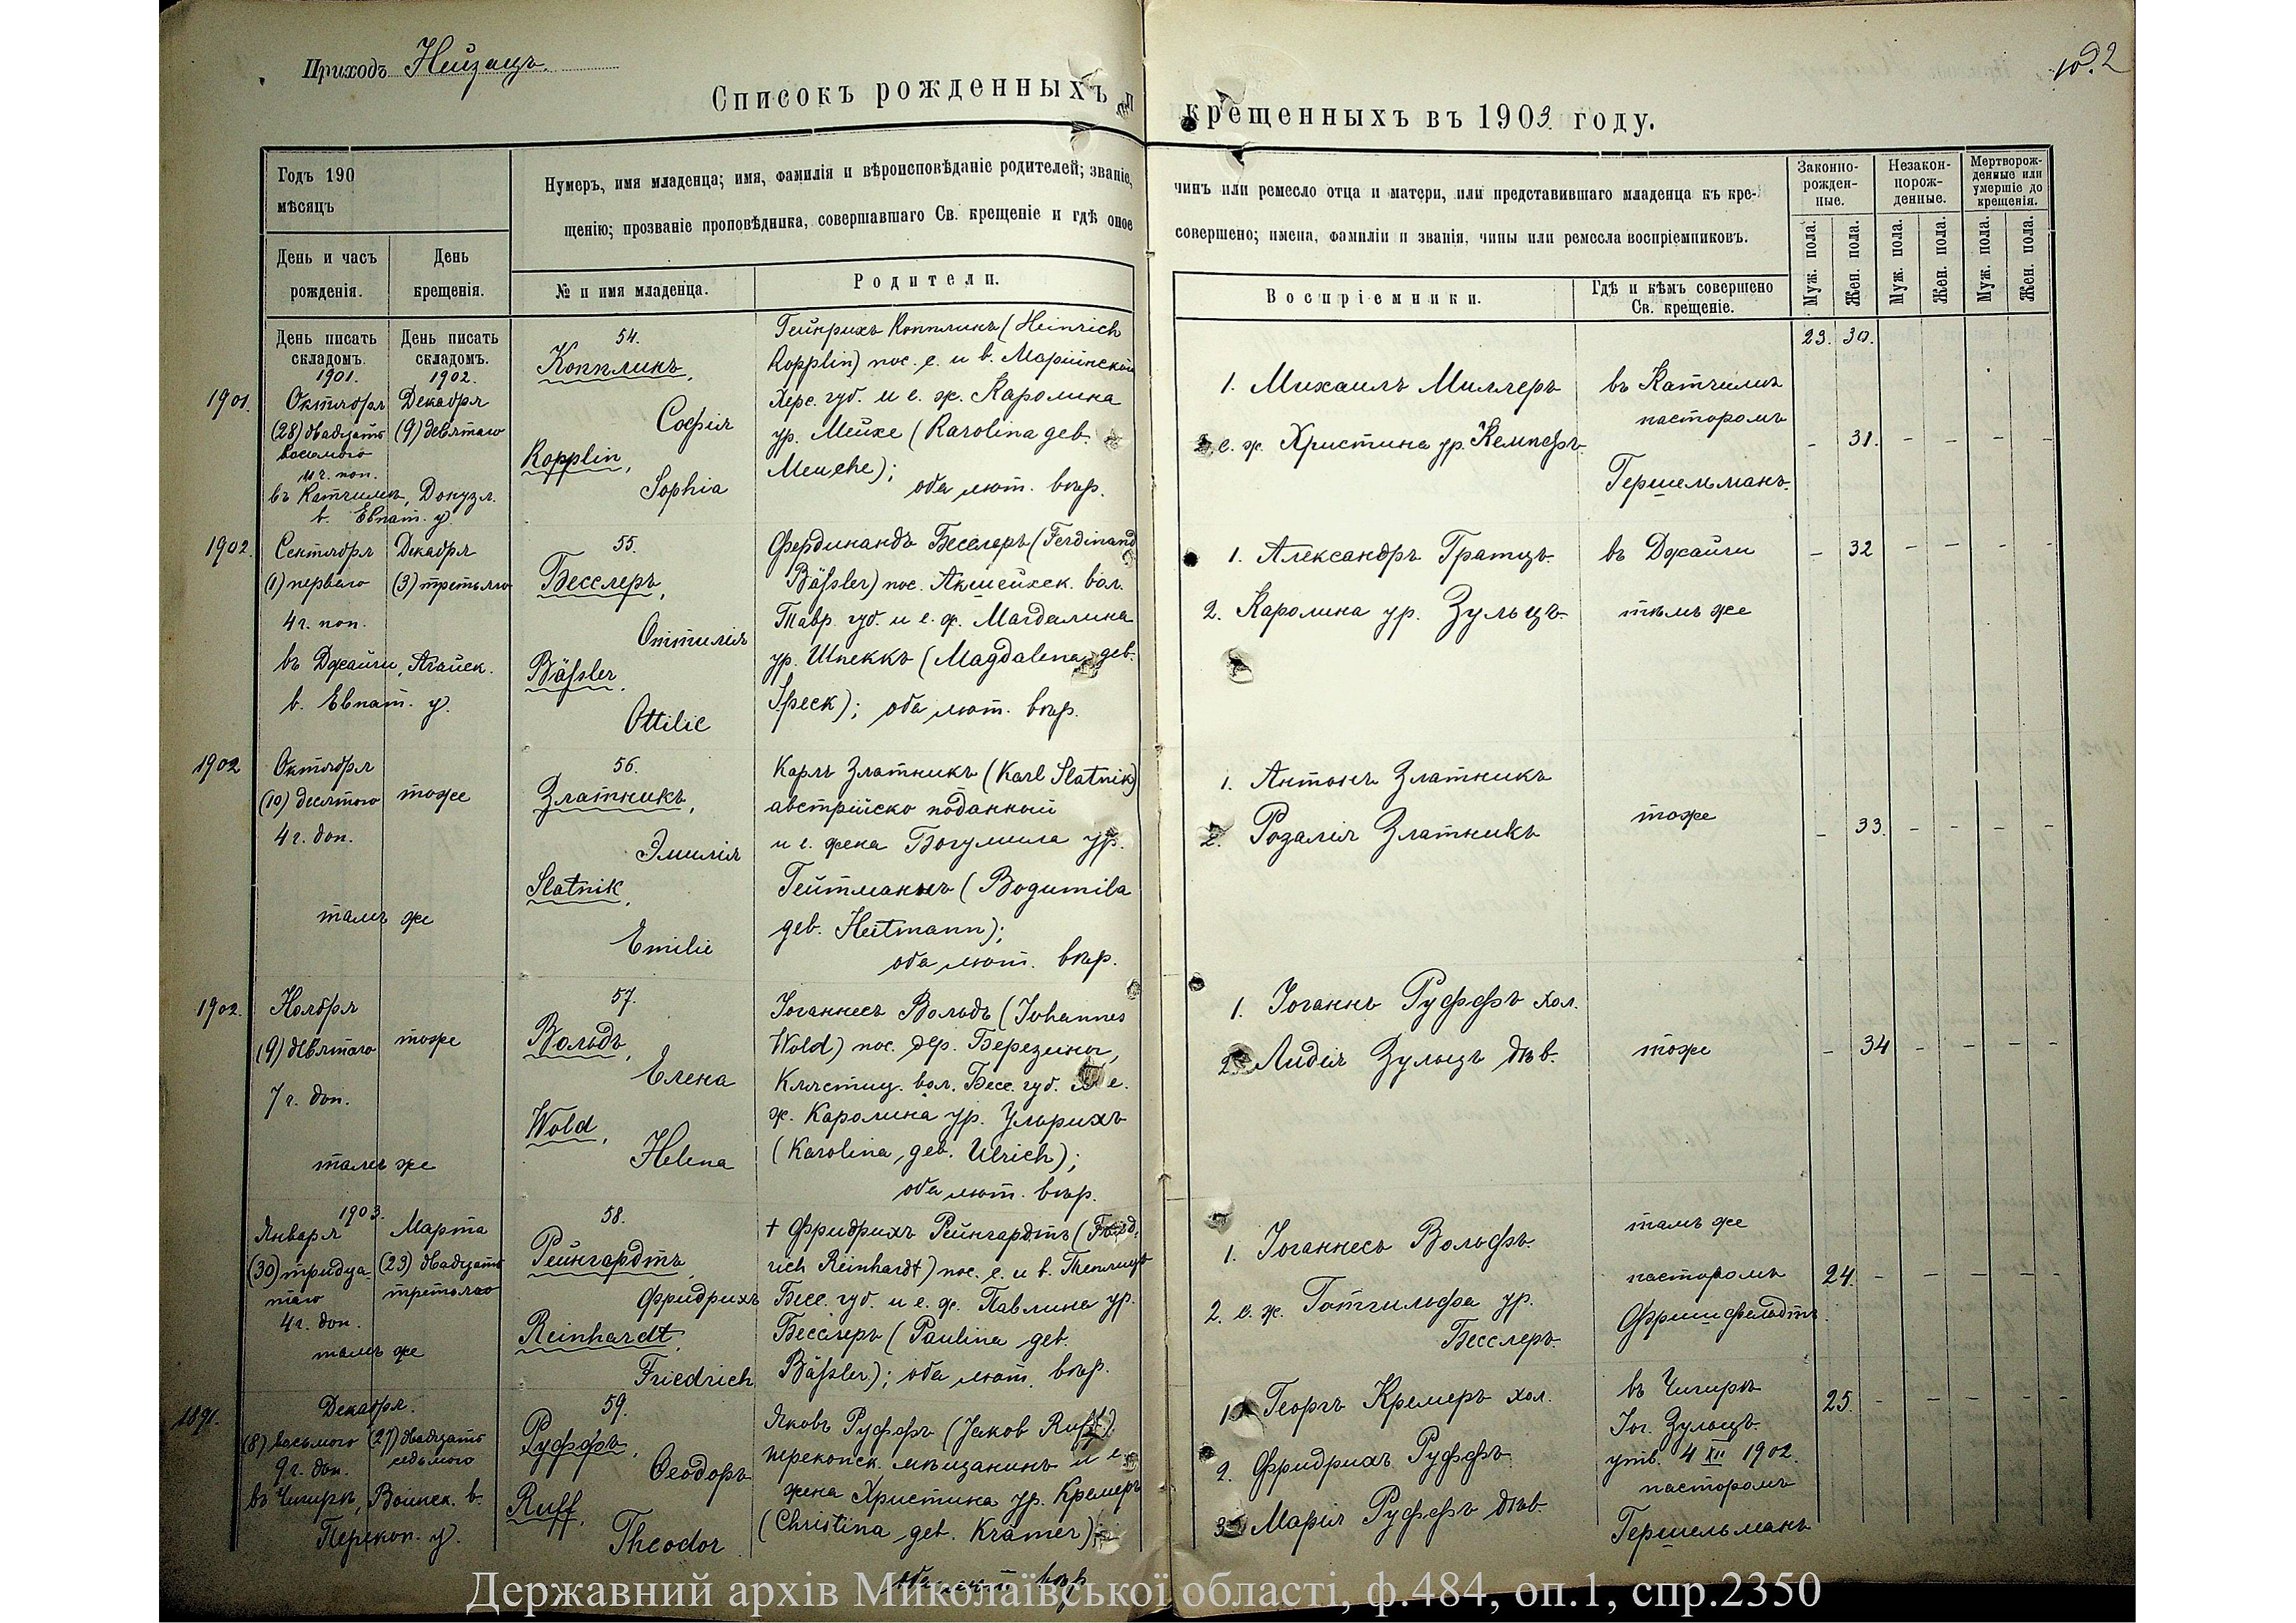 Приходъ Нейзацъ.
10.2
Списокъ рожденныхъ и крещенныхъ въ 1903 году.
Годъ 190
мѣсяцъ
Нумеръ, имя младенца; имя, фамилія и вѣроисповѣданіе родителей; званіе, чинъ или ремесло отца и матери, или представившаго младенца къ кре-
щенію; прозваніе проповѣдника, совершавшаго Св. крещеніе и гдѣ оное совершено; имена, фамиліи и званія, чины или ремесла воспріемниковъ.
Законно-
рожден-
ные.
Незакон-
норож-
денные.
Мертворож-
денные или
умершіе до
крещенія.
День и часъ
рожденія.
День
крещенія.
№ и имя младенца.
Родители.
Воспріемники.
Гдѣ и кѣмъ совершено
Св. крещеніе.
Муж. пола.
Жен. пола.
Муж. пола.
Жен. пола.
Муж. пола.
Жен. пола.
День писать
складомъ.
День писать
складомъ.
23. 30.
1901.
1901.
Октября
(28) двадцать
восьмого
11 ч. поп.
въ Катчилик, Докузл.
в. Евпат. у.
1902.
Декабря
(9) девятаго
54.
Копплинъ,
Софія
Kopplin,
Sophia
Гейнрихъ Копплинъ (Heinrich
Kopplin) пос. с. и в. Маріинской
Херс. губ. и е. ж. Каролина
ур. Мейхе (Karolina geb.
Meuche);
оба лют. вѣр.
1. Михаилъ Миллеръ
2. е. ж. Христина ур. Кемпфъ.
въ Катчиликѣ
пасторомъ
Гершельманъ.
- 31. - - - -
1902.
Сентября
(1) перваго
4 ч. поп.
въ Джайчи, Агайск.
в. Евпат. у.
Декабря
(3) третьяго
55.
Бесслеръ,
Оттилія
Bäßler,
Ottilie
Фердинандъ Бесслеръ (Ferdinand
Bäßler) пос. Акшейхск. вол.
Тавр. губ. и е. ж. Магдалина
ур. Шпеккъ (Magdalena geb.
Speck); оба лют. вѣр.
1. Александръ Гратцъ.
2. Каролина ур. Зульцъ.
въ Джайчи
тѣмъ же
- 32 - - - -
1902
Октября
(10) десятаго
4 ч. доп.
тамъ же
тоже
56.
Златникъ,
Эмилія
Slatnik,
Emilie
Карлъ Златникъ (Karl Slatnik)
австрійско подданный
и е. жена Богумила ур.
Гейтманнъ (Bogumila
geb. Heitmann);
оба лют. вѣр.
1. Антонъ Златникъ
2. Розалія Златникъ
тоже
- 33. - - - -
1902.
Ноября
(9) девятаго
7 ч. доп.
тамъ же
тоже
57.
Вольдъ,
Елена
Wold,
Helena
Іоганнесъ Вольдъ (Johannes
Wold) пос. дер. Березины,
Клястиц. вол. Бесс. губ. и е.
ж. Каролина ур. Ульрихъ
(Karolina, geb. Ulrich);
оба лют. вѣр.
1. Іоганнъ Руффъ хол.
2. Лидія Зульцъ дѣв.
тоже
- 34 - - - -
1903.
Января
(30) тридца-
таго
4 ч. доп.
тамъ же
Марта
(23) двадцать
третьяго
58.
Рейнгардтъ,
Фридрихъ
Reinhardt,
Friedrich
+ Фридрихъ Рейнгардтъ (Fried.
rich Reinhardt) пос. с. и в. Теплицъ
Бесс. губ. и е. ж. Павлина ур.
Бесслеръ (Paulina geb.
Bäßler); оба лют. вѣр.
1. Іоганнесъ Вольфъ.
2. е. ж. Готгильфа ур.
Бесслеръ.
тамъ же
пасторомъ
Фришфельдтъ.
24. - - - - -
1891.
Декабря.
(8) восьмого
9 ч. доп.
въ Чигирѣ, Воинск. в.
Перекоп. у.
(27) двадцать
седьмого
59.
Руффъ,
Ѳеодоръ
Ruff,
Theodor
Яковъ Руффъ (Jakob Ruff)
перекопск. мѣщанинъ и е.
жена Христина ур. Кремеръ
(Christina geb. Krämer);
оба лют. вѣр.
1. Георгъ Кремеръ хол.
2. Фридрихъ Руффъ
3. Марія Руффъ дѣв.
въ Чигирѣ
Іог. Зульцъ.
утв. 4 XII 1902.
пасторомъ
Гершельманъ
25. - - - - -
Державний архів Миколаївської області, ф.484, оп.1, спр.2350